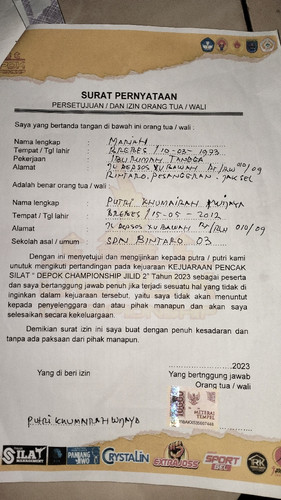 SURAT PERNYATAAN
PERSETUJUAN / DAN IZIN ORANG TUA / WALI
Saya yang bertanda tangan di bawah ini orang tua / wali :
Nama lengkap : MANAH
Tempat / Tgl lahir : BREBES / 10-03-1973
Pekerjaan : IBU RUMAH TANGGA
Alamat : JL DEPSOS XV BAWAH RT/RW 010/09
BINTARO. PESANGGRAHAN. JAKSEL
Adalah benar orang tua / wali dari :
Nama lengkap : PUTRI KHUMAIRAH WIJAYA
Tempat / Tgl lahir : BREBES / 15-05-2012
Alamat : JL DEPSOS XV BAWAH RT/RW 010/09
Sekolah asal / umum : SDN BINTARO 03
Dengan ini menyetujui dan mengijinkan kepada putra / putri kami
untuk mengikuti pertandingan pada kejuaraan KEJUARAAN PENCAK
SILAT " DEPOK CHAMPIONSHIP JILID 2" Tahun 2023 sebagai peserta
dan saya bertanggung jawab penuh jika terjadi sesuatu hal yang tidak di
inginkan dalam kejuaraan tersebut, yaitu saya tidak akan menuntut
kepada penyelenggara dan atau pihak manapun dan akan saya
selesaikan secara kekeluargaan.
Demikian surat izin ini saya buat dengan penuh kesadaran dan
tanpa ada paksaan dari pihak manapun.
2023
Yang di beri izin
Yang bertnggung jawab
Orang tua / wali
METERAI
TEMPEL
PUTRI KHUMAIRAH WIJAYA
SILAT
MANAGEMENT
PANJANG JIWO
CRYSTALIN
EXTRAJOSS
SPORT
GEL
RK